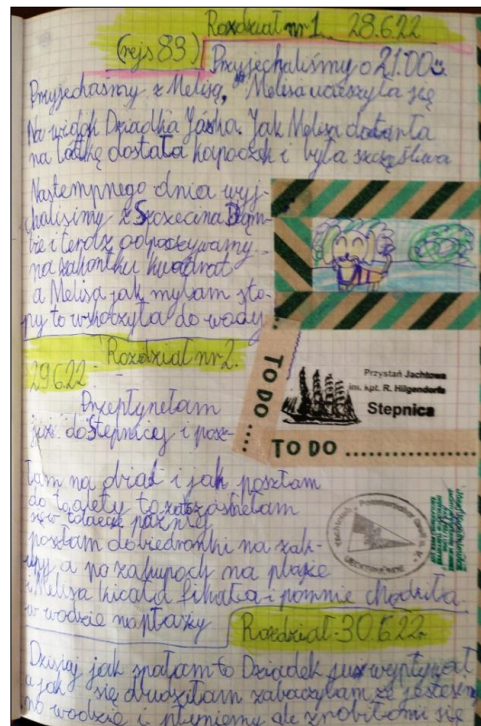 Rozdział nr 1. 28.6.22
(rejs 83)
Przyjechaliśmy o 21.00
Przyjechaśmy z Melisą, Melisa ucieszyła się
Na widok Dziadka Jasha. Jak Melisa dotarła
na łódkę dostała kapoczek i była szczęśliwa
Następnego dnia wyj-
chaliśmy z Szczecina Dąm-
bie i terdz odpoczywamy
na kwadrat
a Melisa jak myłam sto-
py to wskoczyła do wody
Rozdział nr 2.
29.6.22
Przepłynełam
już do Stepnicy i posz-
TO DO
Przystań Jachtowa
im. kpt. R. Hilgendorfa
Stepnica
TO DO
łam na obiad i jak poszłam
do toalety to
później
poszłam do biedronki na zak-
upy a po zakupach na plaże
i Melisa kicała fikała i pomnie chodziła
w wodzie na plaży
Rozdział 30.6.22
Dzisiaj jak spałam to Dziadek już wypłynął
a jak się obudziłam zobaczyłam że jestem
na wodzie i płyniemy ale zrobiłam się